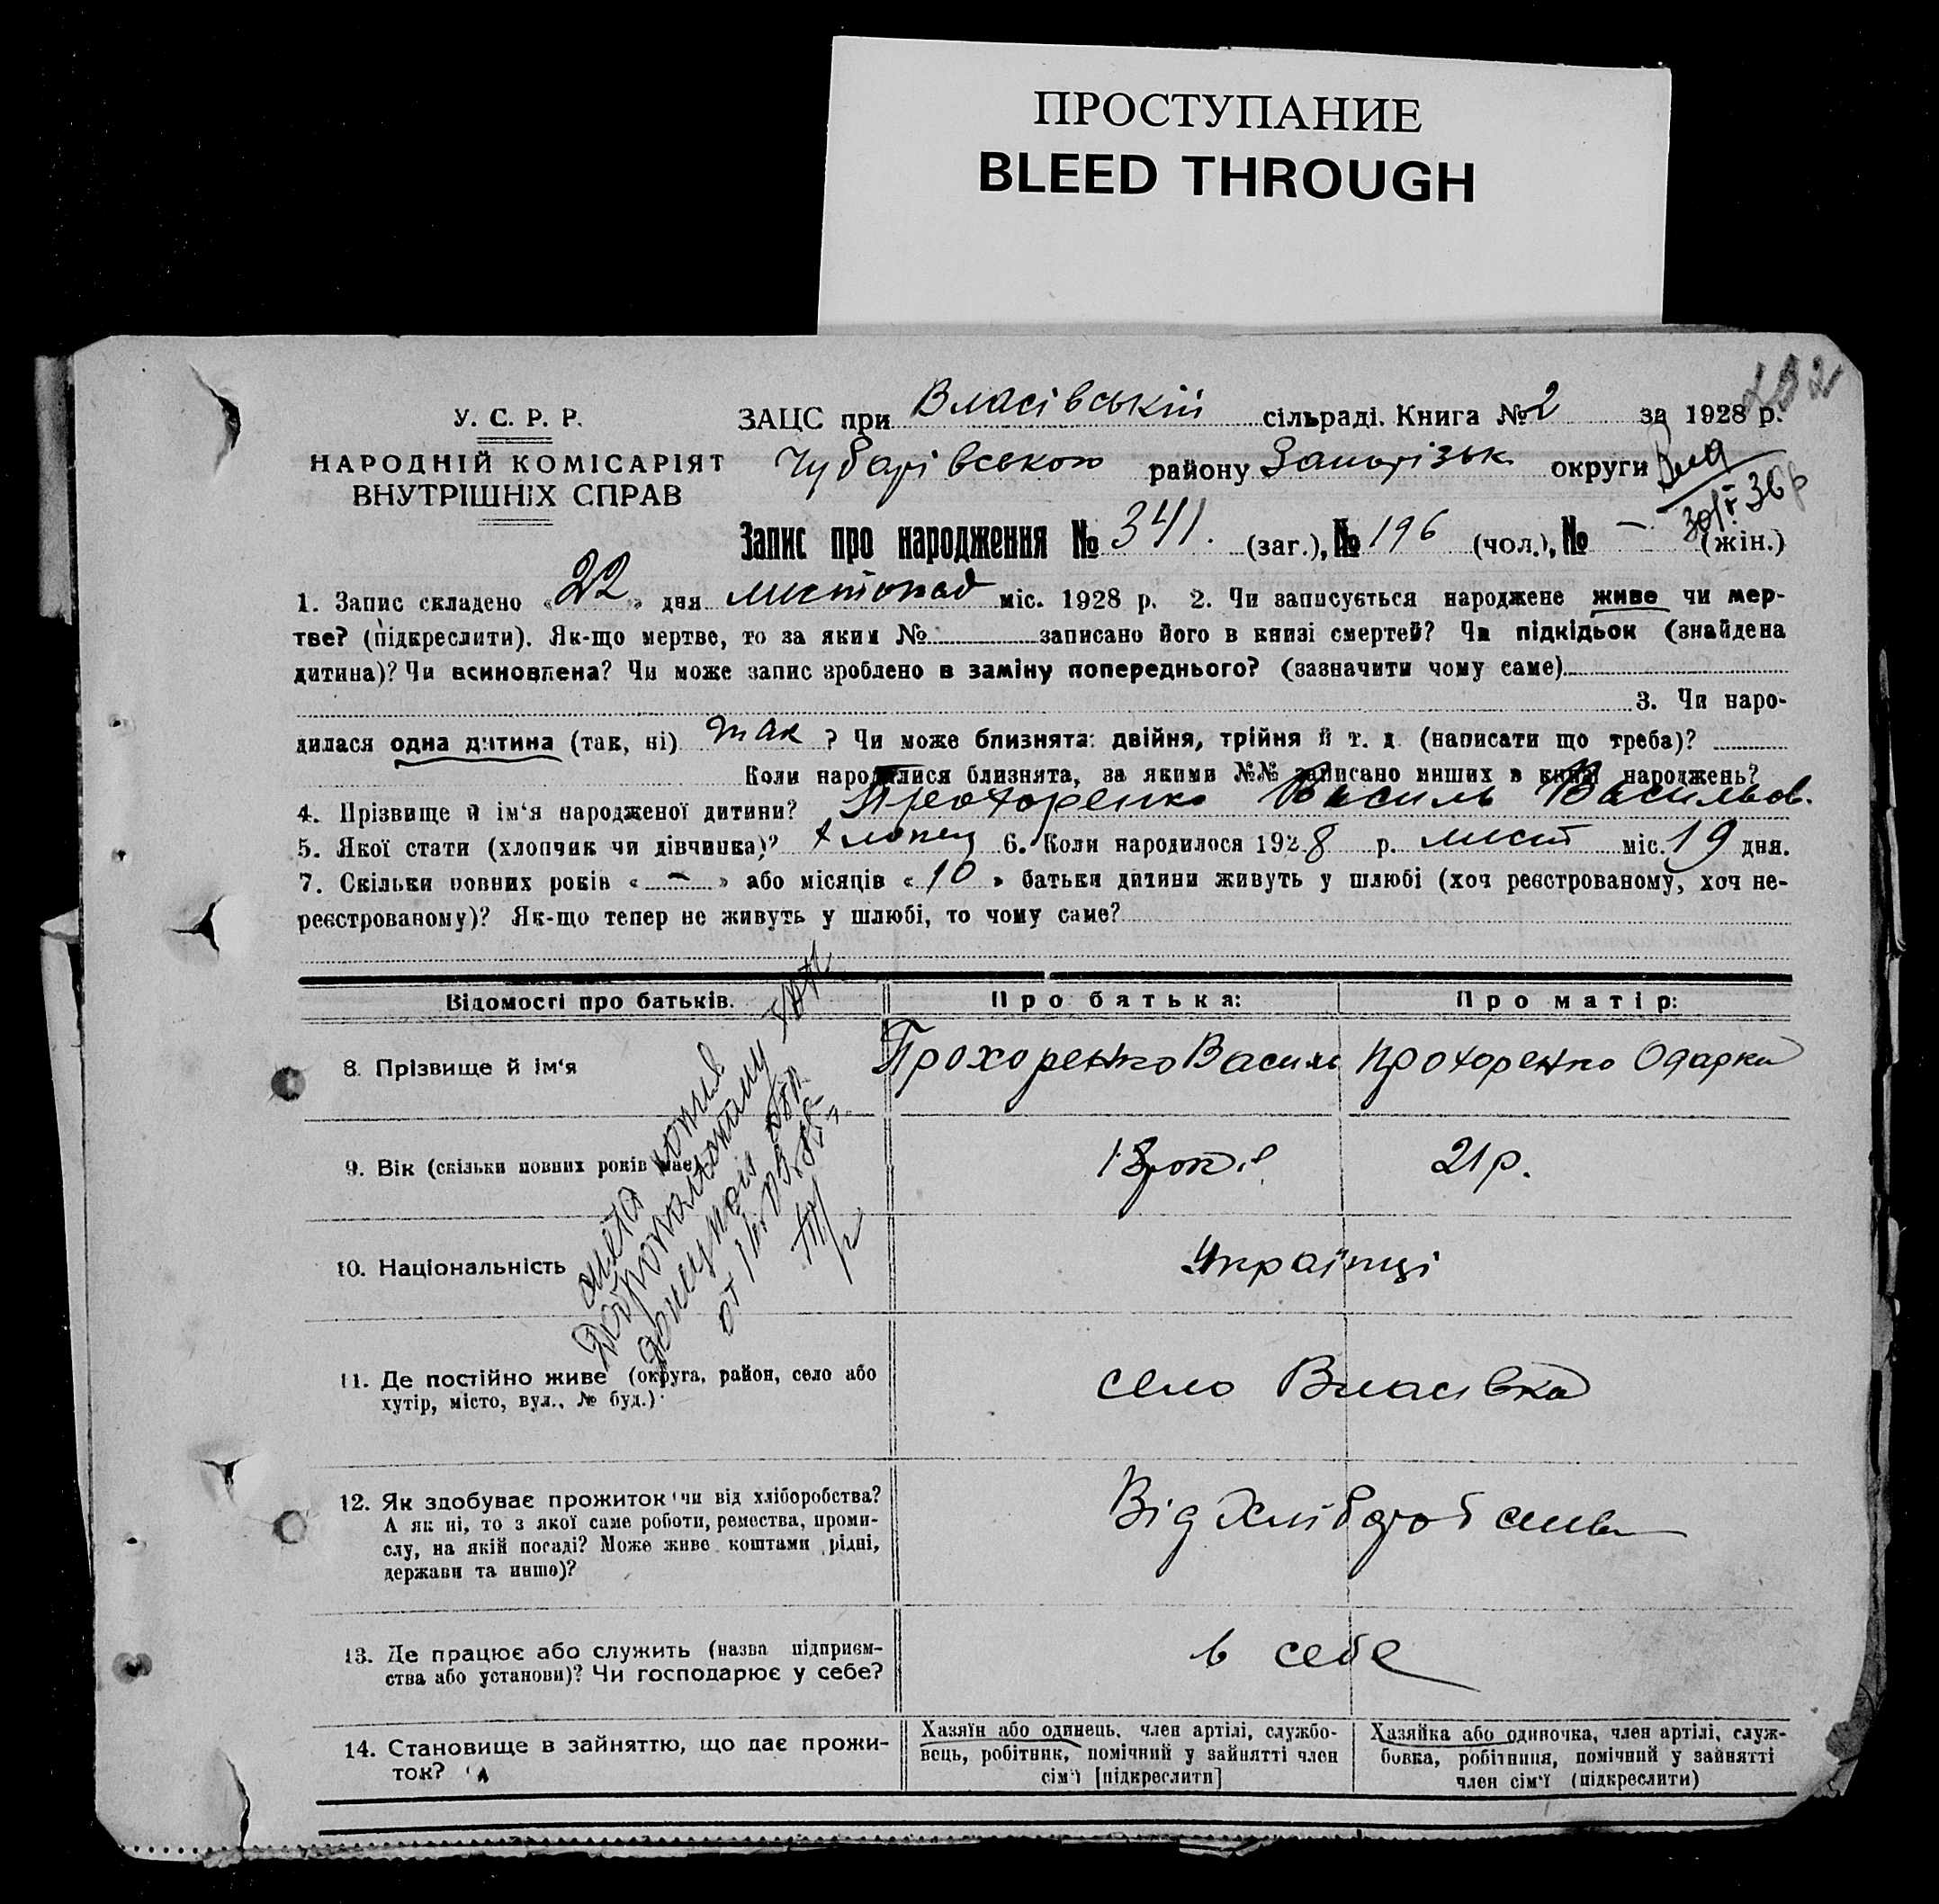 ПРОСТУПАНИЕ
BLEED THROUGH
У. С. Р. Р.
НАРОДНІЙ КОМІСАРІЯТ
ВНУТРІШНІХ СПРАВ
ЗАЦС при Власівській сільраді. Книга № 2 за 1928 р.
Чубарівською району Запорізьк округи
Запис про народження № 341. (заг.), № 196 (чол.), № – (жін.)
1. Запис складено «22» дня листопад міс. 1928 р. 2. Чи записується народжене живе чи мер-
тве? (підкреслити). Як-що мертве, то за яким № записано його в книзі смертей? Чи підкідьок (знайдена
дитина)? Чи всиновлена? Чи може запис зроблено в заміну попереднього? (зазначити чому саме)
3. Чи наро-
дилася одна дитина (так, ні) так ? Чи може близнята: двійня, трійня й т. д. (написати що треба)?
Коли народилися близнята, за якими №№ записано инших в книзі народжень?
4. Прізвище й ім'я народженої дитини? Прохоренко Василь Васильов.
5. Якої стати (хлопчик чи дівчинка)? хлопец 6. Коли народилося 1928 р. лист міс. 19 дня.
7. Скільки повних років «–» або місяців «10» батьки дитини живуть у шлюбі (хоч реєстрованому, хоч не-
реєстрованому)? Як-що тепер не живуть у шлюбі, то чому саме?
Відомості про батьків. Про батька: Про матір:
8. Прізвище й ім'я Прохоренко Василь Прохоренко Одарка
9. Вік (скільки повних років має 18 років 21 р.
10. Національність Українці
11. Де постійно живе (округа, район, село або
хутір, місто, вул., № буд.) село Власівка
12. Як здобуває прожиток чи від хліборобства?
А як ні, то з якої саме роботи, ремества, проми-
слу, на якій посаді? Може живе коштами рідні,
держави та инше)?
Від хліборобства
13. Де працює або служить (назва підприєм-
ства або установи)? Чи господарює у себе?
в себе
14. Становище в зайняттю, що дає прожи-
ток?
Хазяїн або одинець, член артілі, службо-
вець, робітник, помічний у зайнятті член
сім'ї [підкреслити]
Хазяйка або одиночка, член артілі, служ-
бовка, робітниця, помічний у зайнятті
член сім'ї (підкреслити)